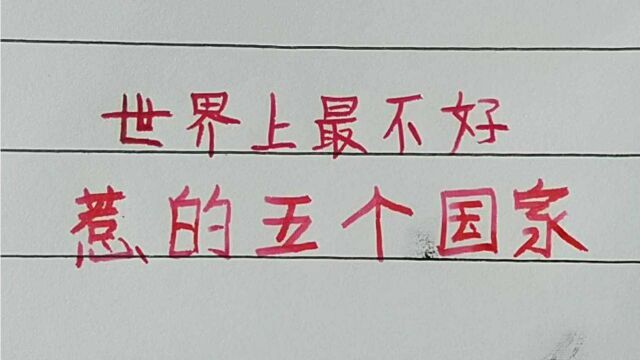 世界上最不好
惹的五个国家